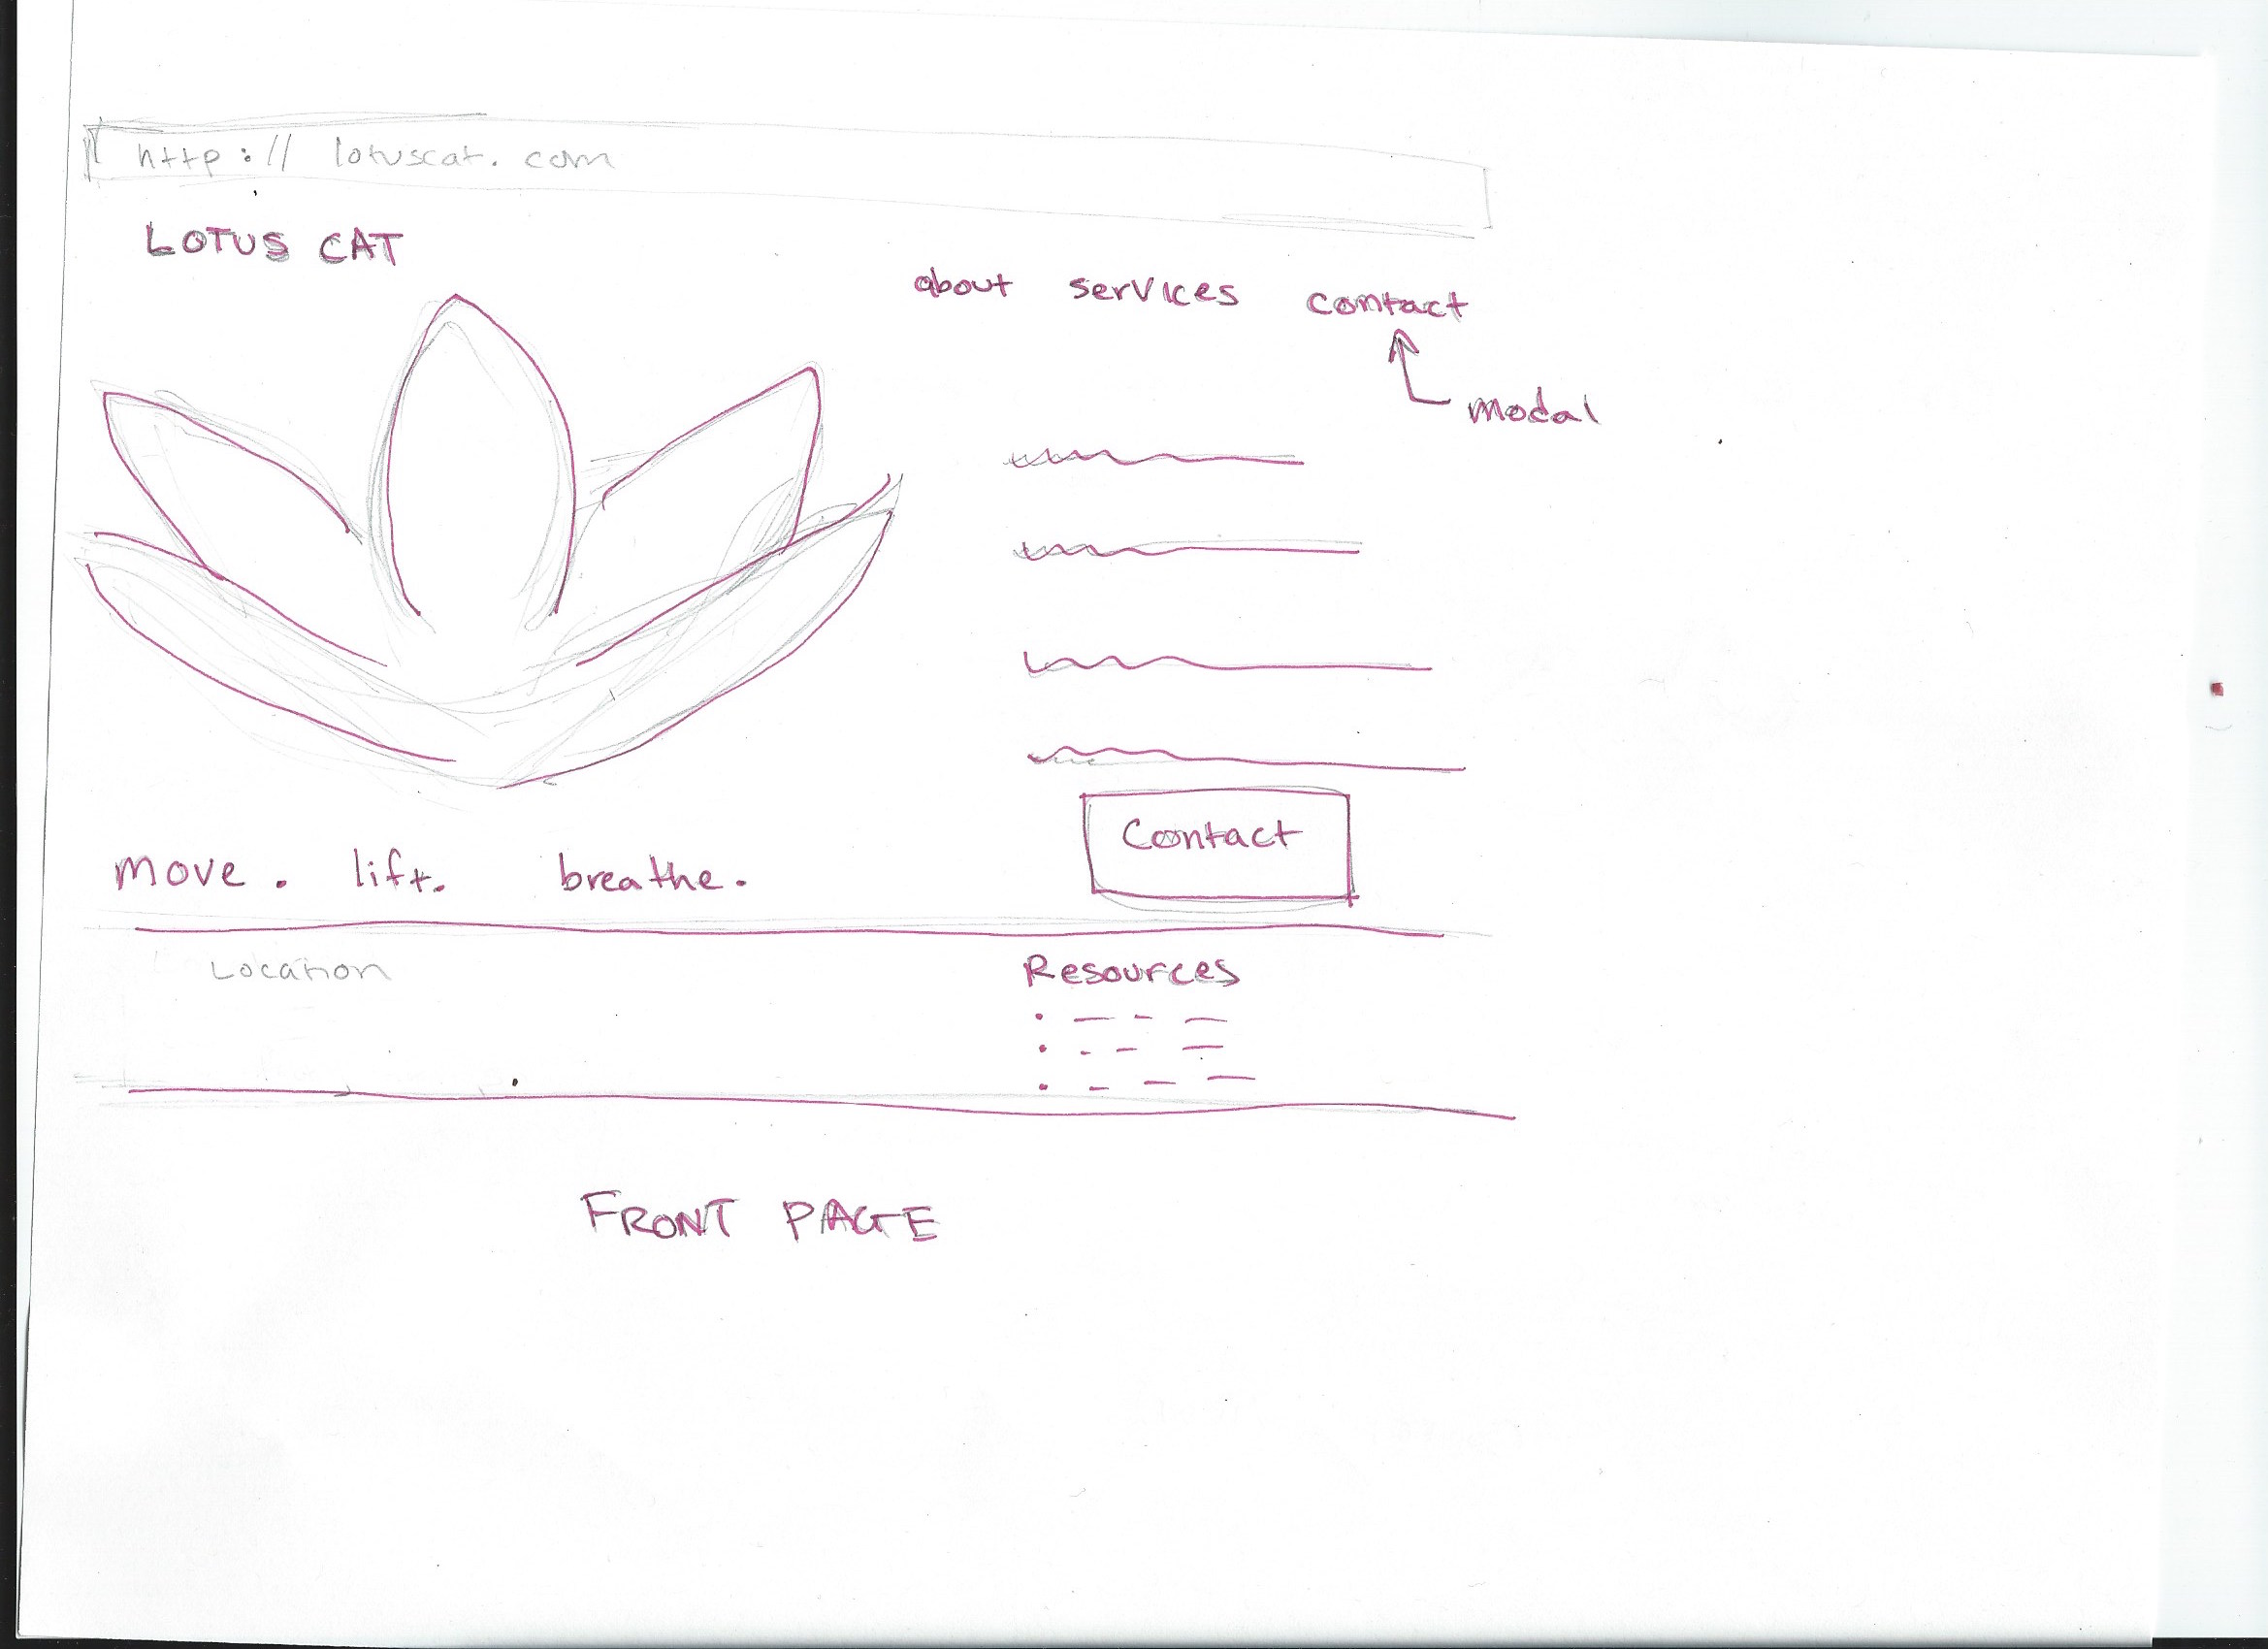 http:// lotuscat. com
LOTUS CAT
about services contact
modal
Contact
move. lift. breathe.
Location
Resources
FRONT PAGE